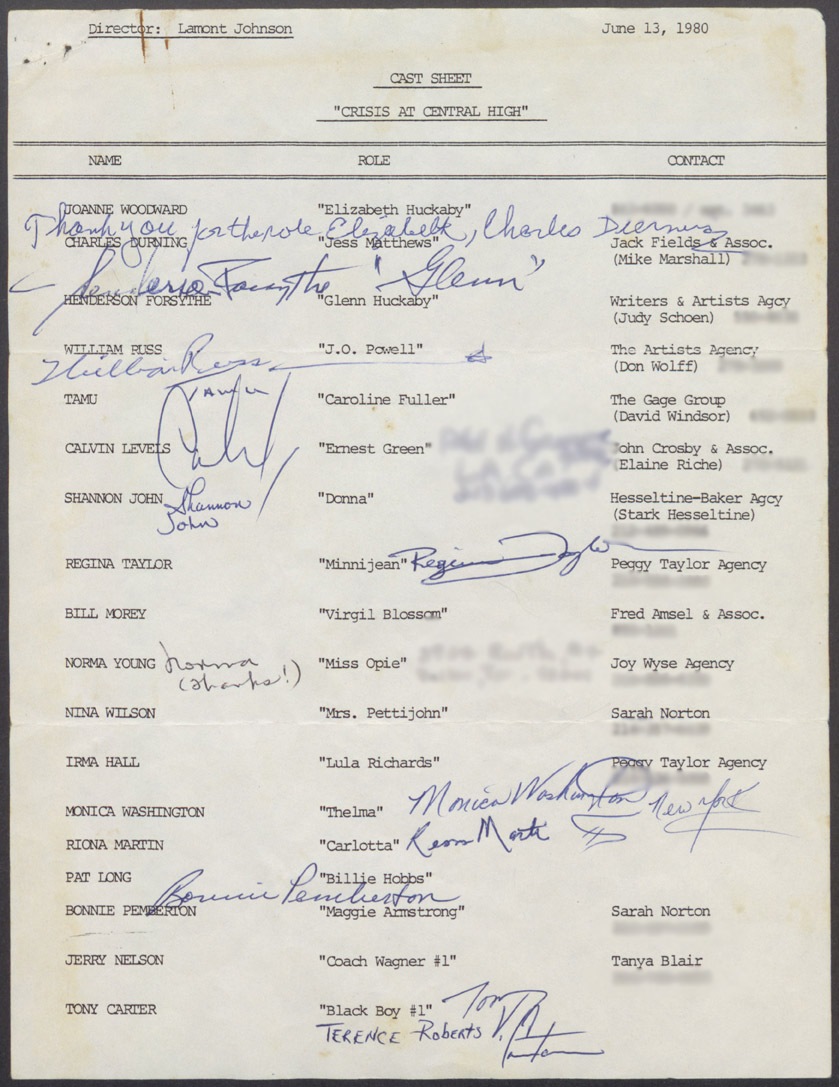 Director: Lamont Johnson June 13, 1980
CAST SHEET
"CRISIS AT CENTRAL HIGH"
NAME ROLE CONTACT
JOANNE WOODWARD "Elizabeth Huckaby"
Thank you for the role Elizabeth, Charles Durning
CHARLES DURNING "Jess Matthews" Jack Fields & Assoc.
(Mike Marshall)
Henderson Forsythe "Glenn"
HENDERSON FORSYTHE "Glenn Huckaby" Writers & Artists Agcy
(Judy Schoen)
WILLIAM RUSS "J.O. Powell" The Artists Agency
William Russ (Don Wolff)
Tamu
TAMU "Caroline Fuller" The Gage Group
(David Windsor)
CALVIN LEVELS "Ernest Green" John Crosby & Assoc.
(Elaine Riche)
SHANNON JOHN Shannon John "Donna" Hesseltine-Baker Agcy
(Stark Hesseltine)
REGINA TAYLOR "Minnijean" Regina Taylor Peggy Taylor Agency
BILL MOREY "Virgil Blossom" Fred Amsel & Assoc.
NORMA YOUNG Norma "Miss Opie" Joy Wyse Agency
(thanks!)
NINA WILSON "Mrs. Pettijohn" Sarah Norton
IRMA HALL "Lula Richards" Peggy Taylor Agency
MONICA WASHINGTON "Thelma" Monica Washington New York
RIONA MARTIN "Carlotta" Riona Martin
PAT LONG "Billie Hobbs"
Bonnie Pemberton
BONNIE PEMBERTON "Maggie Armstrong" Sarah Norton
JERRY NELSON "Coach Wagner #1" Tanya Blair
TONY CARTER "Black Boy #1" Tony
TERENCE Roberts